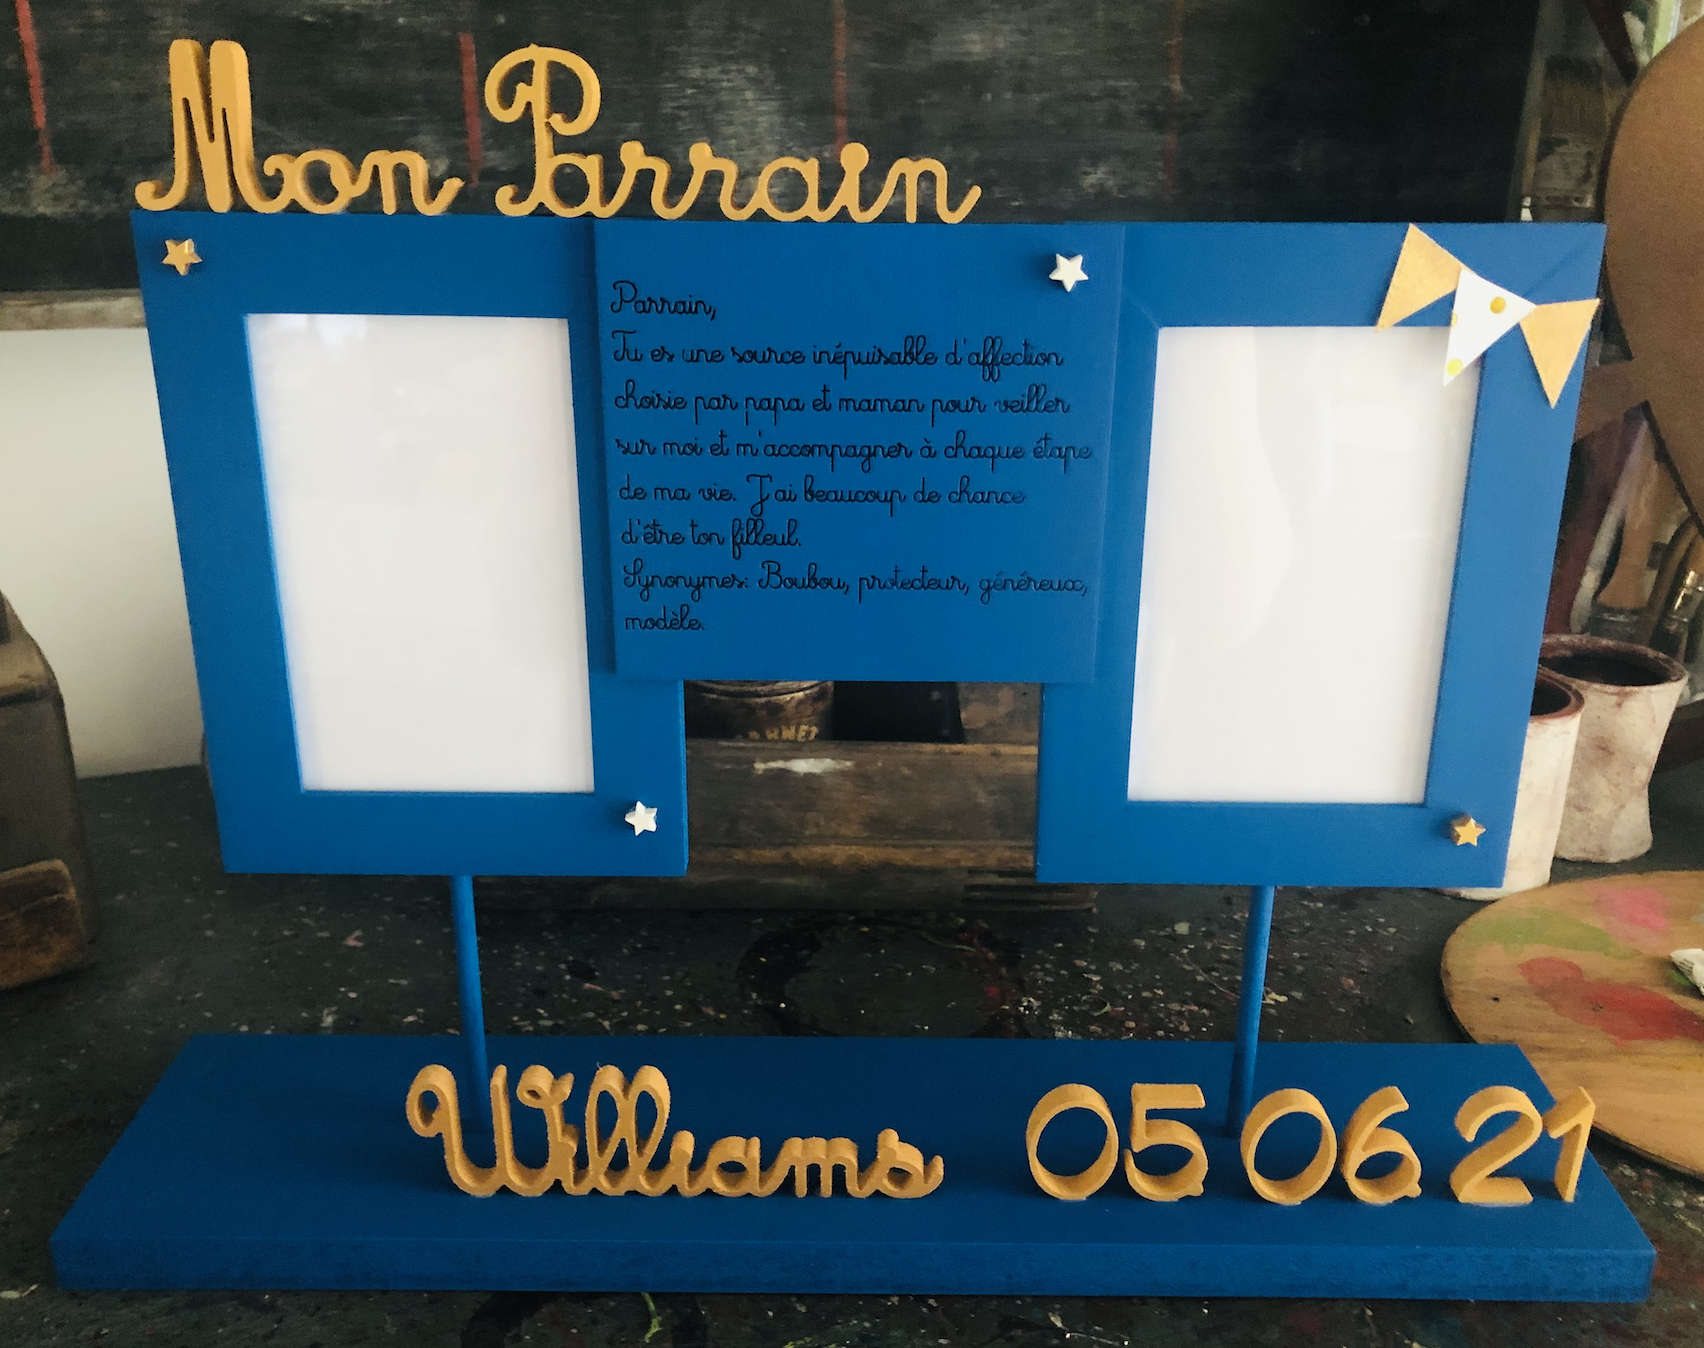 Mon Parrain
Parrain,
Tu es une source inépuisable d'affection
choisie par papa et maman pour veiller
sur moi et m'accompagner à chaque étape
de ma vie. J'ai beaucoup de chance
d'être ton filleul.
Synonymes: Boubou, protecteur, généreux,
modèle.
Williams 05 06 21